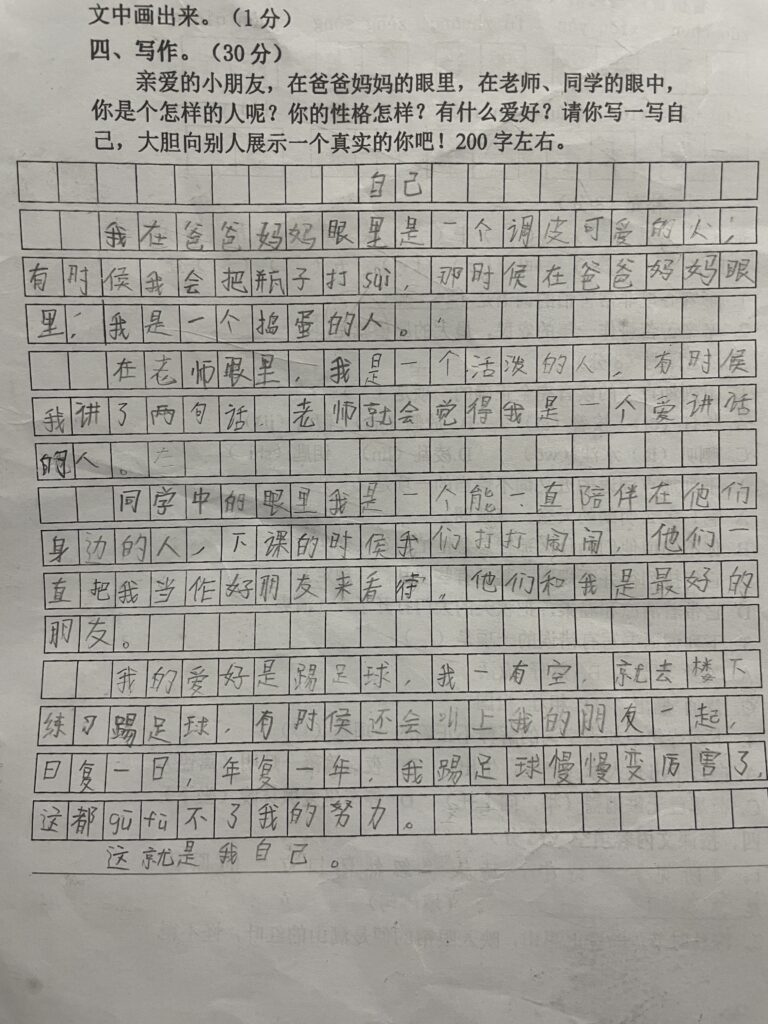 文中画出来。（1分）
四、写作。（30分）
亲爱的小朋友，在爸爸妈妈的眼里，在老师、同学的眼中，
你是个怎样的人呢？你的性格怎样？有什么爱好？请你写一写自
己，大胆向别人展示一个真实的你吧！200字左右。
自己
我在爸爸妈妈眼里是一个调皮可爱的人；
有时候我会把瓶子打suì，那时候在爸爸妈妈眼
里；我是一个捣蛋的人。
在老师眼里，我是一个活泼的人，有时候
我讲了两句话，老师就会觉得我是一个爱讲话
的人。
同学中的眼里我是一个能一直陪伴在他们
身边的人，下课的时候我们打打闹闹，他们一
直把我当作好朋友来看待，他们和我是最好的
朋友。
我的爱好是踢足球，我一有空，就去楼下
练习踢足球，有时候还会叫上我的朋友一起，
日复一日，年复一年，我踢足球慢慢变厉害了，
这都gū fū不了我的努力。
这就是我自己。